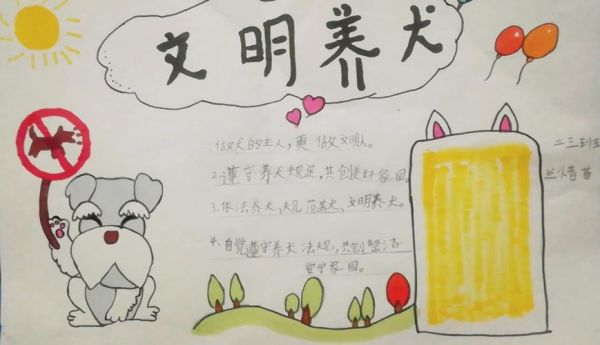 文明养犬
做犬的主人，更做文明人。
2.遵守养犬规定，共创美好家园。
3.依法养犬，规范养犬，文明养犬。
4.自觉遵守养犬法规，共创整洁
安宁家园。
二三班